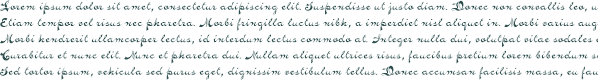 Lorem ipsum dolor sit amet, consectetur adipiscing elit. Suspendisse ut justo diam. Donec non convallis leo, u
Etiam tempor vel risus nec pharetra. Morbi fringilla luctus nibh, a imperdiet nisl aliquet in. Morbi varius aug
Morbi hendrerit ullamcorper lectus, id interdum lectus commodo at. Integer nulla dui, volutpat vitae sodales e
Curabitur et nunc elit. Nunc et pharetra dui. Nullam aliquet ultrices risus, faucibus pretium lorem bibendum s
Sed tortor ipsum, vehicula sed purus eget, dignissim vestibulum tellus. Donec accumsan facilisis massa, eu fa